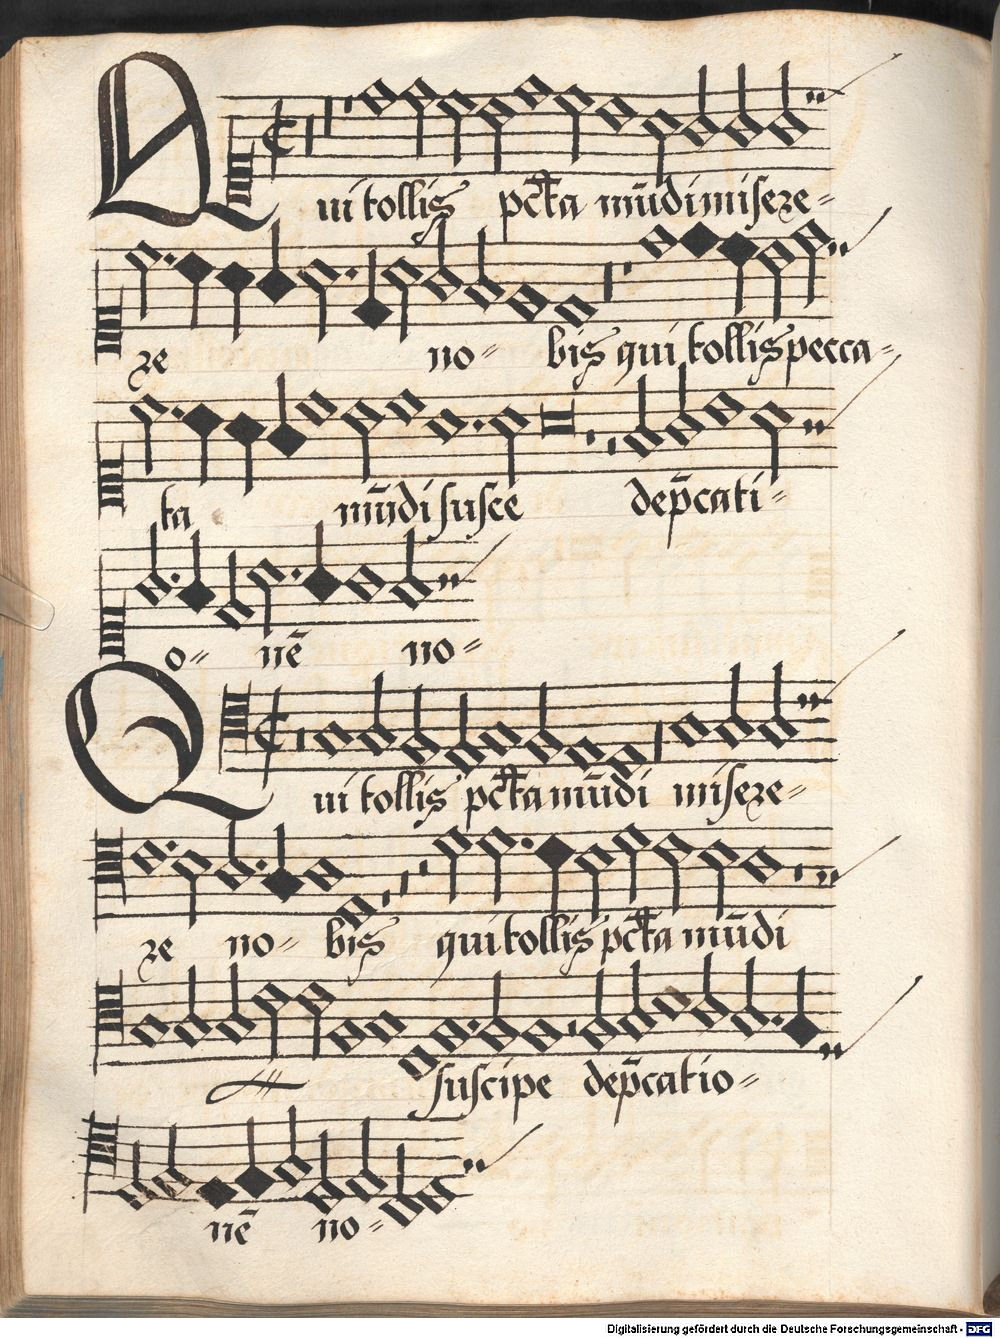 Qui tollis pct̄a mūdi miseze-
ze no- bis qui tollis pecca-
ta mūdi susce dep̄cati-
o- nē no-
Qui tollis pct̄a mūdi miseze-
ze no- bis qui tollis pct̄a mūdi
suscipe dep̄catio-
nē no-
Digitalisierung gefördert durch die Deutsche Forschungsgemeinschaft - DFG